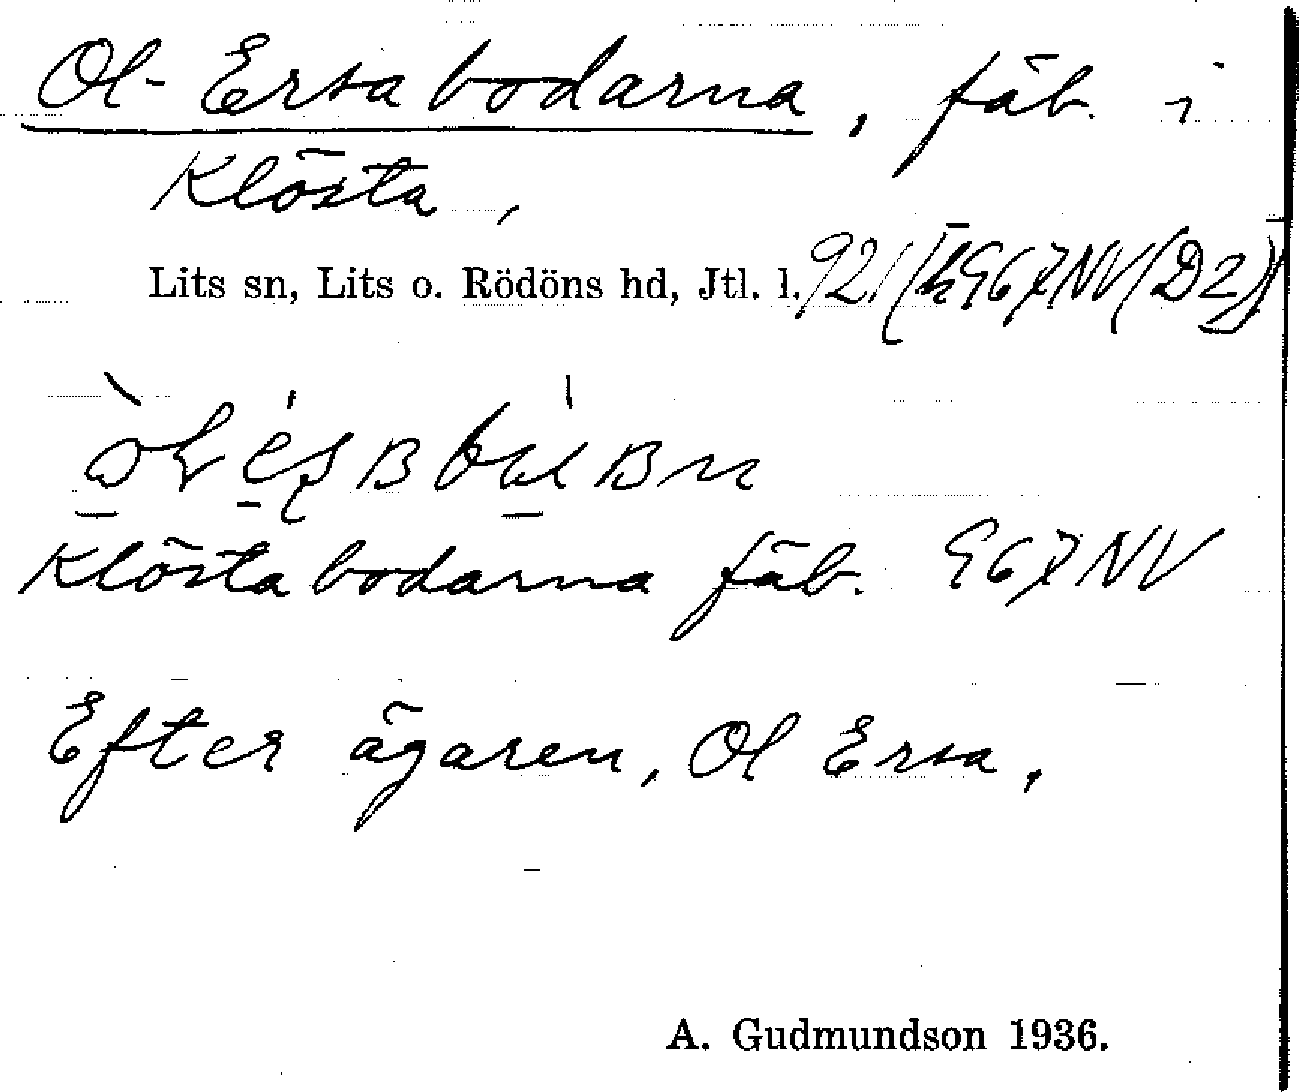 Ol-Ersabodarna, fäb. i
Klösta,
Lits sn, Lits o. Rödöns hd, Jtl. l.
Klöstabodarna fäb. G67NV
Efter ägaren, Ol Ersa.
A. Gudmundson 1936.